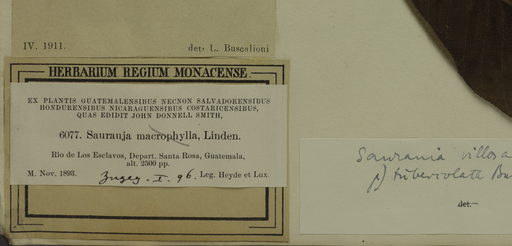 IV. 1911.
det. L. Buscalioni
HERBARIUM REGIUM MONACENSE
EX PLANTIS GUATEMALENSIBUS NECNON SALVADORENSIBUS
HONDURENSIBUS NICARAGUENSIBUS COSTARICENSIBUS,
QUAS EDIDIT JOHN DONNELL SMITH,
6077. Saurauja macrophylla, Linden.
Rio de Los Esclavos, Depart. Santa Rosa, Guatemala,
alt. 2500 pp.
M. Nov. 1893.
Zugeg. I. 96. Leg. Heyde et Lux.
Saurauia villosa
β) tuberculata Bu
det.—